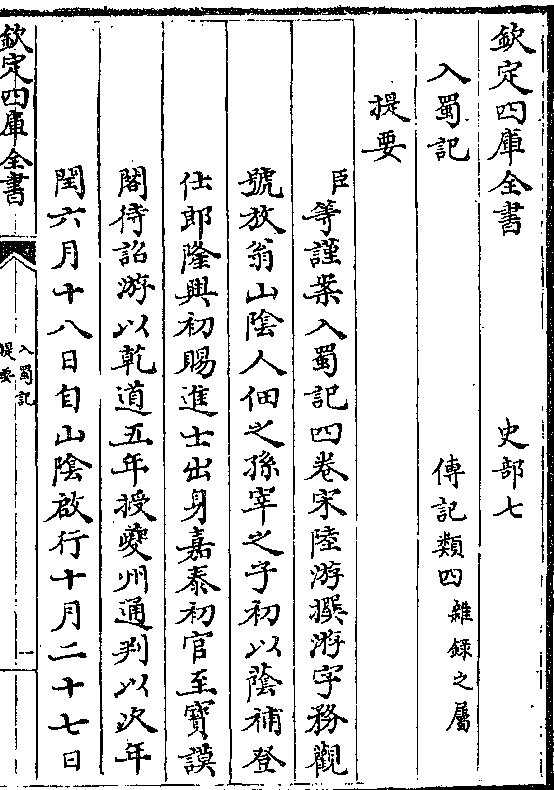 欽定四庫全書　史部七
入蜀記　傳記類四雜録之屬
提要
臣等謹案入蜀記四卷宋陸游撰游字務觀
號放翁山陰人佃之孫宰之子初以蔭補登
仕郎隆興初賜進士出身嘉泰初官至寶謨
閣待詔游以乾道五年授夔州通判以次年
閏六月十八日自山陰啟行十月二十七日
欽定四庫全書
入蜀記
提要
一